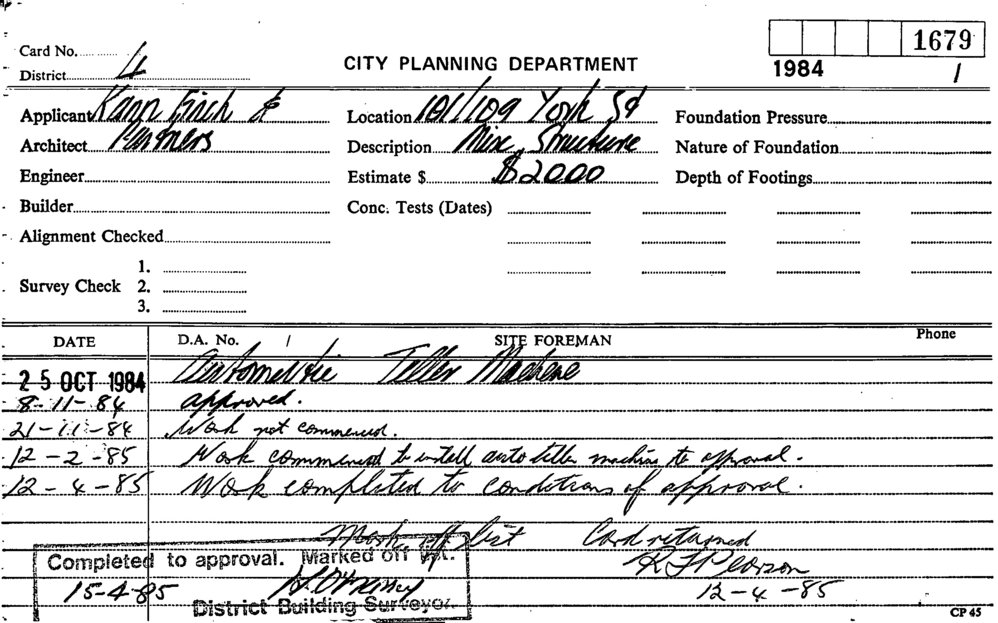 1679
Card No.
District 4
CITY PLANNING DEPARTMENT
1984 /
Applicant Kann Finch &
Location 101/109 York St
Foundation Pressure
Architect Partners
Description Misc Structure
Nature of Foundation
Engineer
Estimate $ $2000
Depth of Footings
Builder
Conc. Tests (Dates)
Alignment Checked
1.
Survey Check 2.
3.
DATE D.A. No. / SITE FOREMAN Phone
25 OCT 1984 Automatic Teller Machine
8-11-84 approved.
21-11-84 Work not commenced.
12-2-85 Work commenced to install auto teller machine to approval.
12-4-85 Work completed to conditions of approval.
Mark off list Card returned
Completed to approval. Marked off
R J Pearson
15-4-85
12-4-85
District Building Surveyor.
CP 45